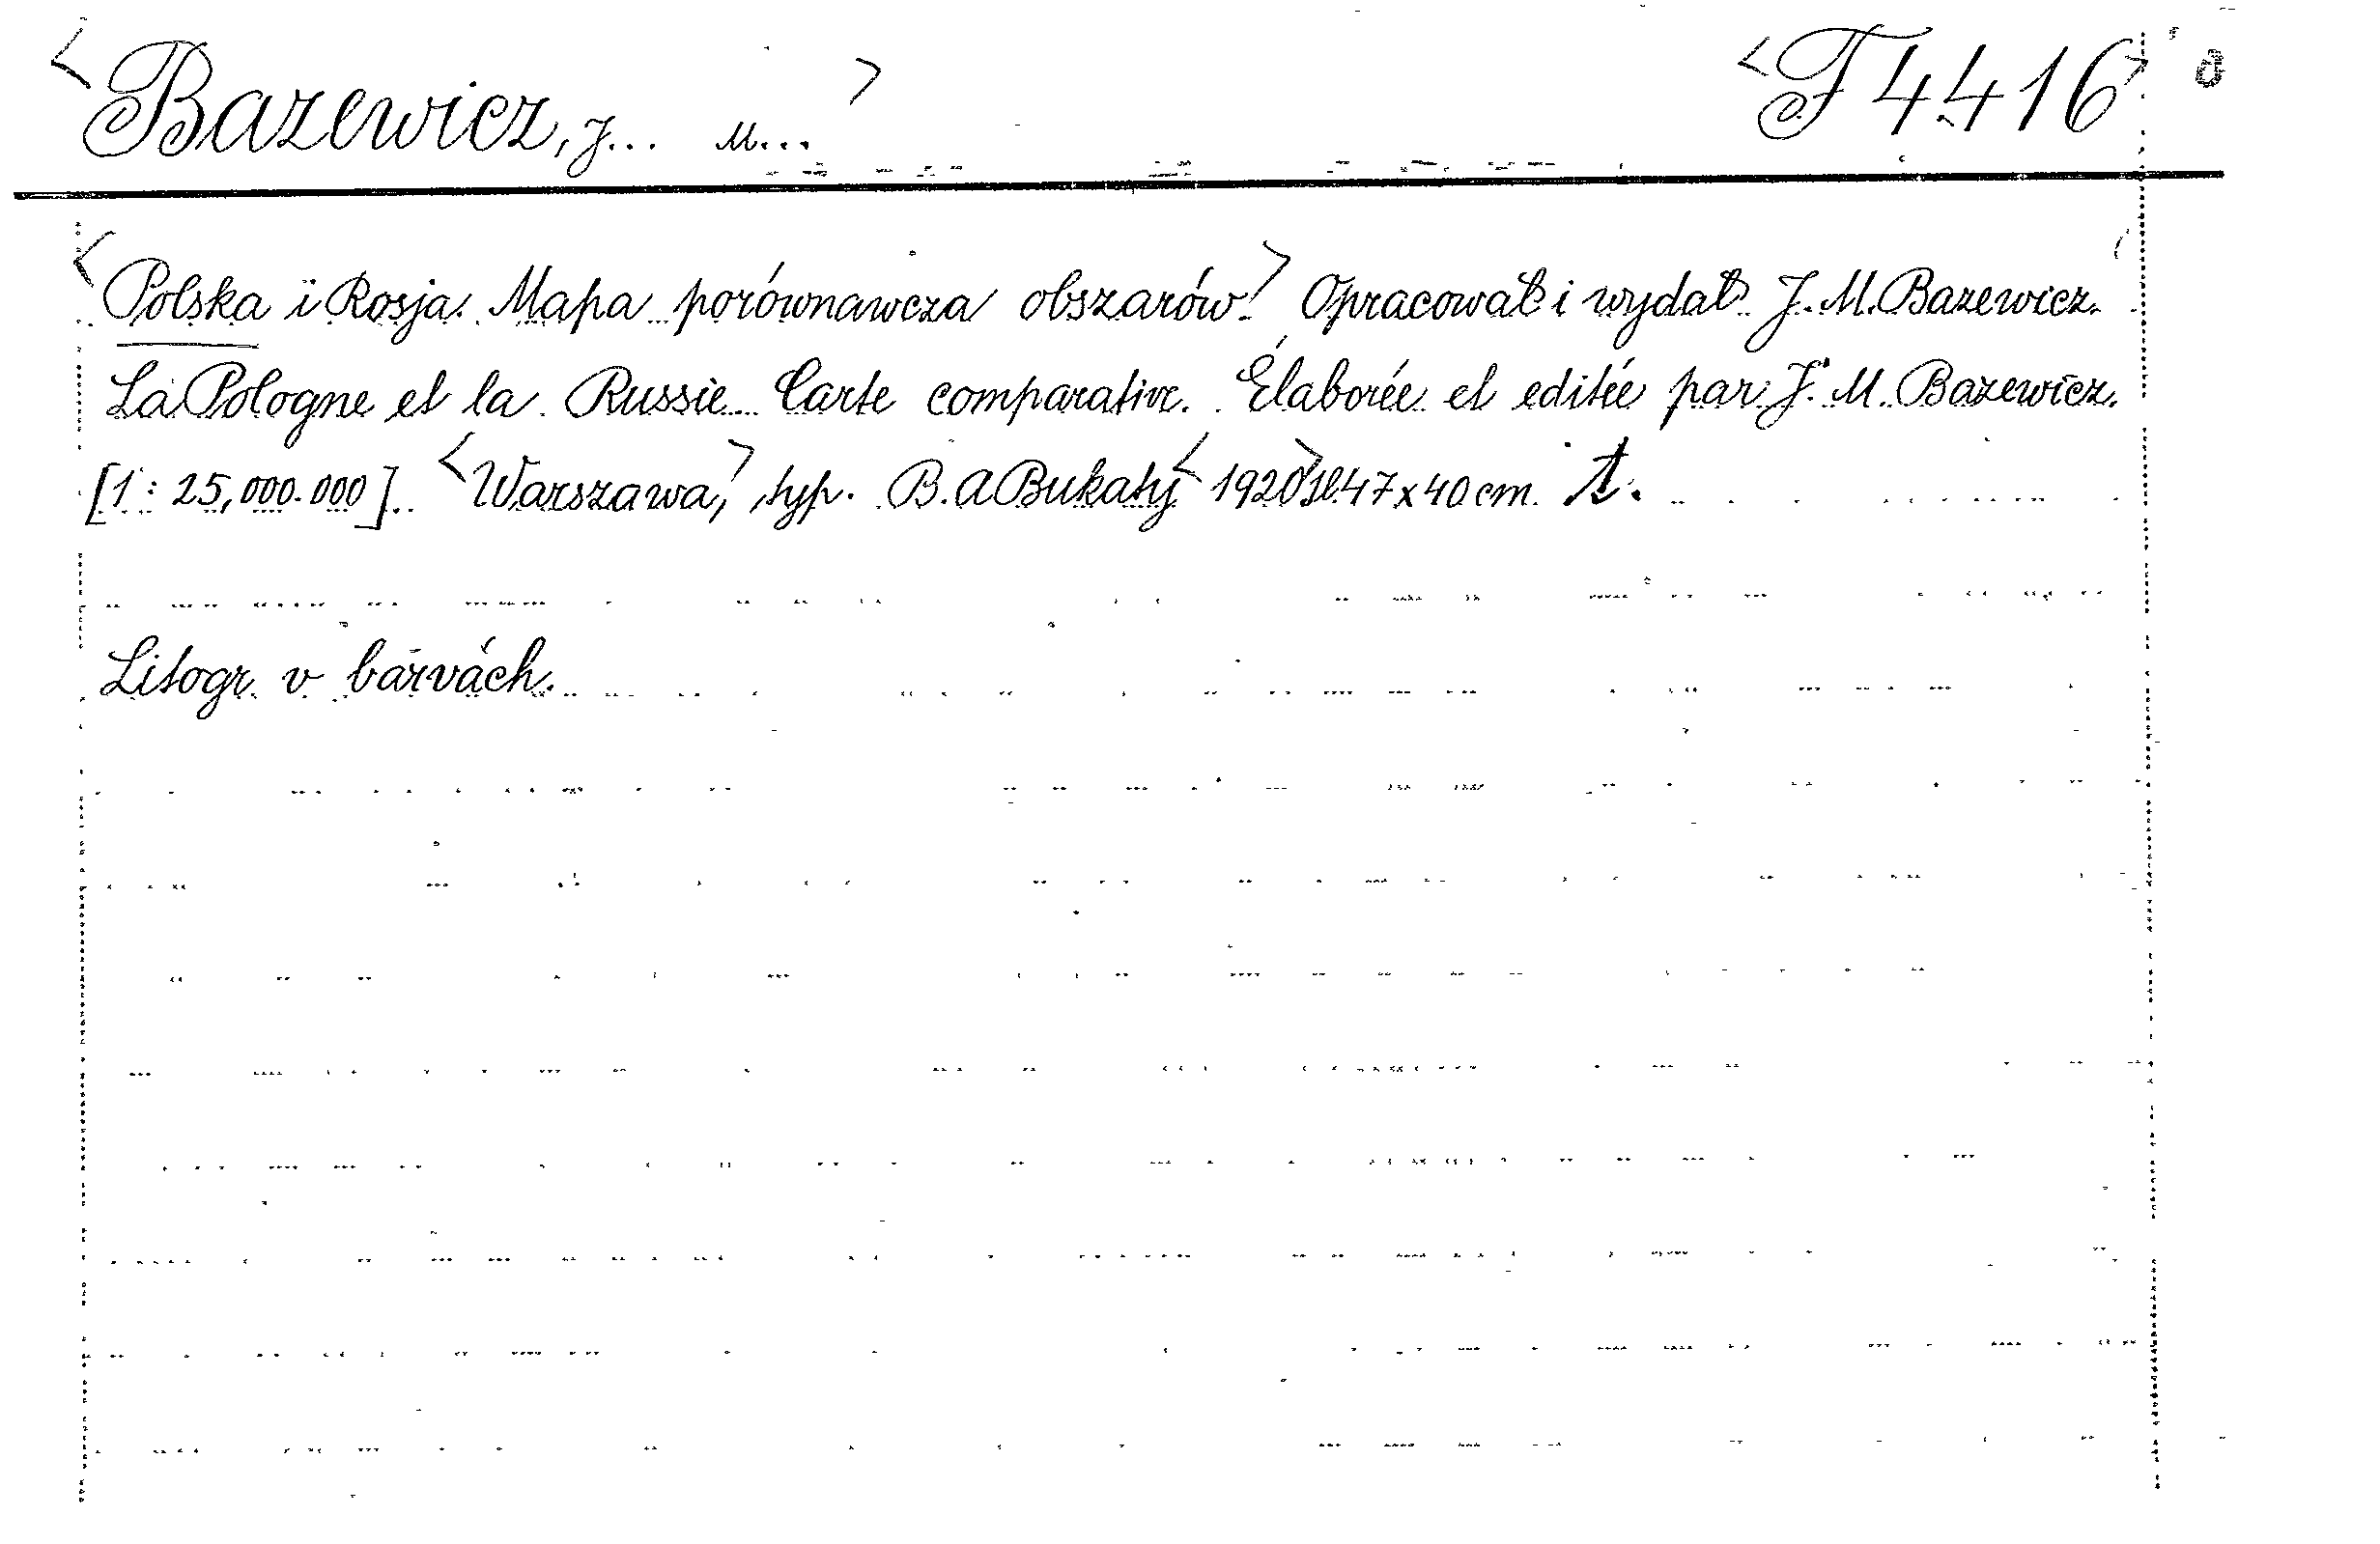 <Bazewicz, J... M...> <F 4416>
<Polska i Rosja. Mapa porównawcza obszarów.> Opracował i wydał J. M. Bazewicz.
La Pologne et la Russie. Carte comparative. Élaborée et editée par J. M. Bazewicz.
[1 : 25,000.000]. <Warszawa,> typ. B. A Bukaty <1920> 47 x 40 cm.
Litogr. v barvách.